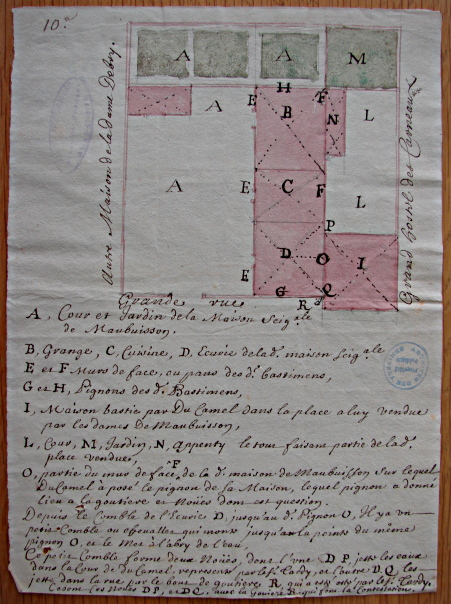 10.e
A A M
H
A E B F N L
A E C F L
P
E D O I
G R Q
Autre Maison de la dame Debry.
Grand hostel des Carneaux
Grande rue
A, Cour et Jardin de la Maison Seig.ale
de Maubuisson.
B, Grange, C, Cuisine, D, Ecurie de lad. maison Seig.ale
E et F Murs de face, ou pans des d. bastimens,
G et H, Pignons des d. Bastimens,
I, Maison bastie par Du Camel dans la place a luy vendue
par les dames de Maubuisson,
L, Cour, M, Jardin, N, Appenty le tout faisant partie de lad.
place vendue,
O, partie du mur de face, F de la d. maison de Maubuisson sur lequel
DuCamel à posé le pignon de la Maison, lequel pignon a donné
lieu a la goutiere et Noües dont est question,
Depuis le Comble de l'Ecurie D, jusqu'au d. Pignon O, Il y a un
petit Comble ou qui monte jusqu'a la pointe du même
pignon O, et le Met à l'abry de l'eau,
Ce petit Comble forme deux Noües, dont l'une D P, jette les eaux
dans la Cour de du Camel, represente par le S. Tardy, et l'autre D Q, les
jette dans la rue par le bout de goutiere, R, qui a esté osté par le S. Tardy,
Comme les Noües D P, et D Q, la Goutiere R, qui font la Contestation.